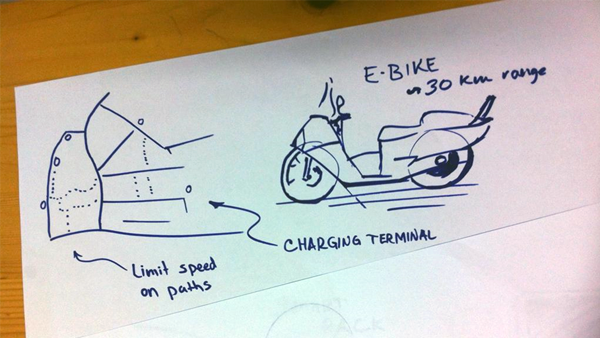 E-BIKE
~30 km range
CHARGING TERMINAL
Limit speed
on paths